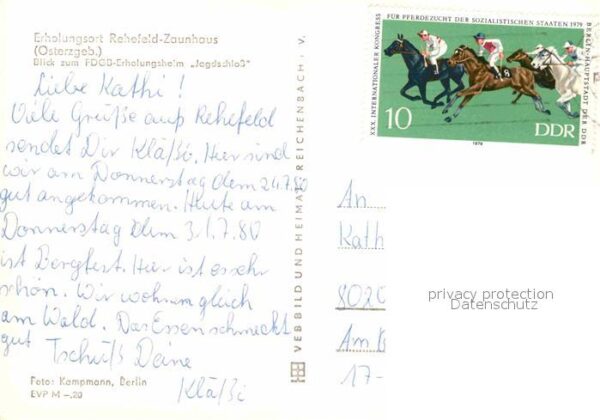 Erholungsort Rehefeld-Zaunhaus
(Osterzgeb.)
Blick zum FDGB-Erholungsheim „Jagdschloß"
Liebe Kathi!
Viele Grüße aus Rehefeld
sendet Dir Kläßi. Hier sind
wir am Donnerstag dem 24.7.80
gut angekommen. Heute am
Donnerstag dem 31.7.80
ist Bergfest. Hier ist es sehr
schön. Wir wohnen gleich
am Wald. Das Essen schmeckt
gut Tschüß Deine
Kläßi
Foto: Kampmann, Berlin
EVP M –,20
VEB BILD UND HEIMAT REICHENBACH i. V.
XXX. INTERNATIONALER KONGRESS
FÜR PFERDEZUCHT DER SOZIALISTISCHEN STAATEN 1979
BERLIN-HAUPTSTADT DER DDR
8
10
DDR
1979
An
Kath
8020
Am
17-
privacy protection
Datenschutz